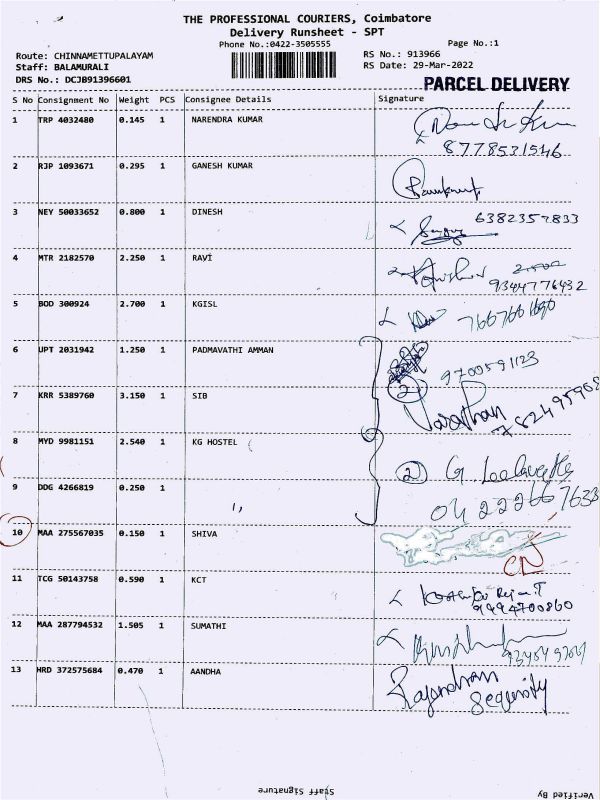 THE PROFESSIONAL COURIERS, Coimbatore
Delivery Runsheet - SPT
Phone No.:0422-3505555
Page No.:1
Route: CHINNAMETTUPALAYAM
RS No.: 913966
Staff: BALAMURALI
RS Date: 29-Mar-2022
DRS No.: DCJB91396601
PARCEL DELIVERY
S No Consignment No Weight PCS Consignee Details Signature
1 TRP 4032480 0.145 1 NARENDRA KUMAR
8778531546
2 RJP 1093671 0.295 1 GANESH KUMAR
3 NEY 50033652 0.800 1 DINESH 6382357833
4 MTR 2182570 2.250 1 RAVI
9344776432
5 BOD 300924 2.700 1 KGISL
6 UPT 2031942 1.250 1 PADMAVATHI AMMAN 9700591123
7 KRR 5389760 3.150 1 SIB 2
Varathan
8 MYD 9981151 2.540 1 KG HOSTEL
2
9 DDG 4266819 0.250 1
04222667633
10 MAA 275567035 0.150 1 SHIVA
11 TCG 50143758 0.590 1 KCT
9994700860
12 MAA 287794532 1.505 1 SUMATHI
13 HRD 372575684 0.470 1 AANDHA Rajendran
Sequrity
Staff Signature
Verified By